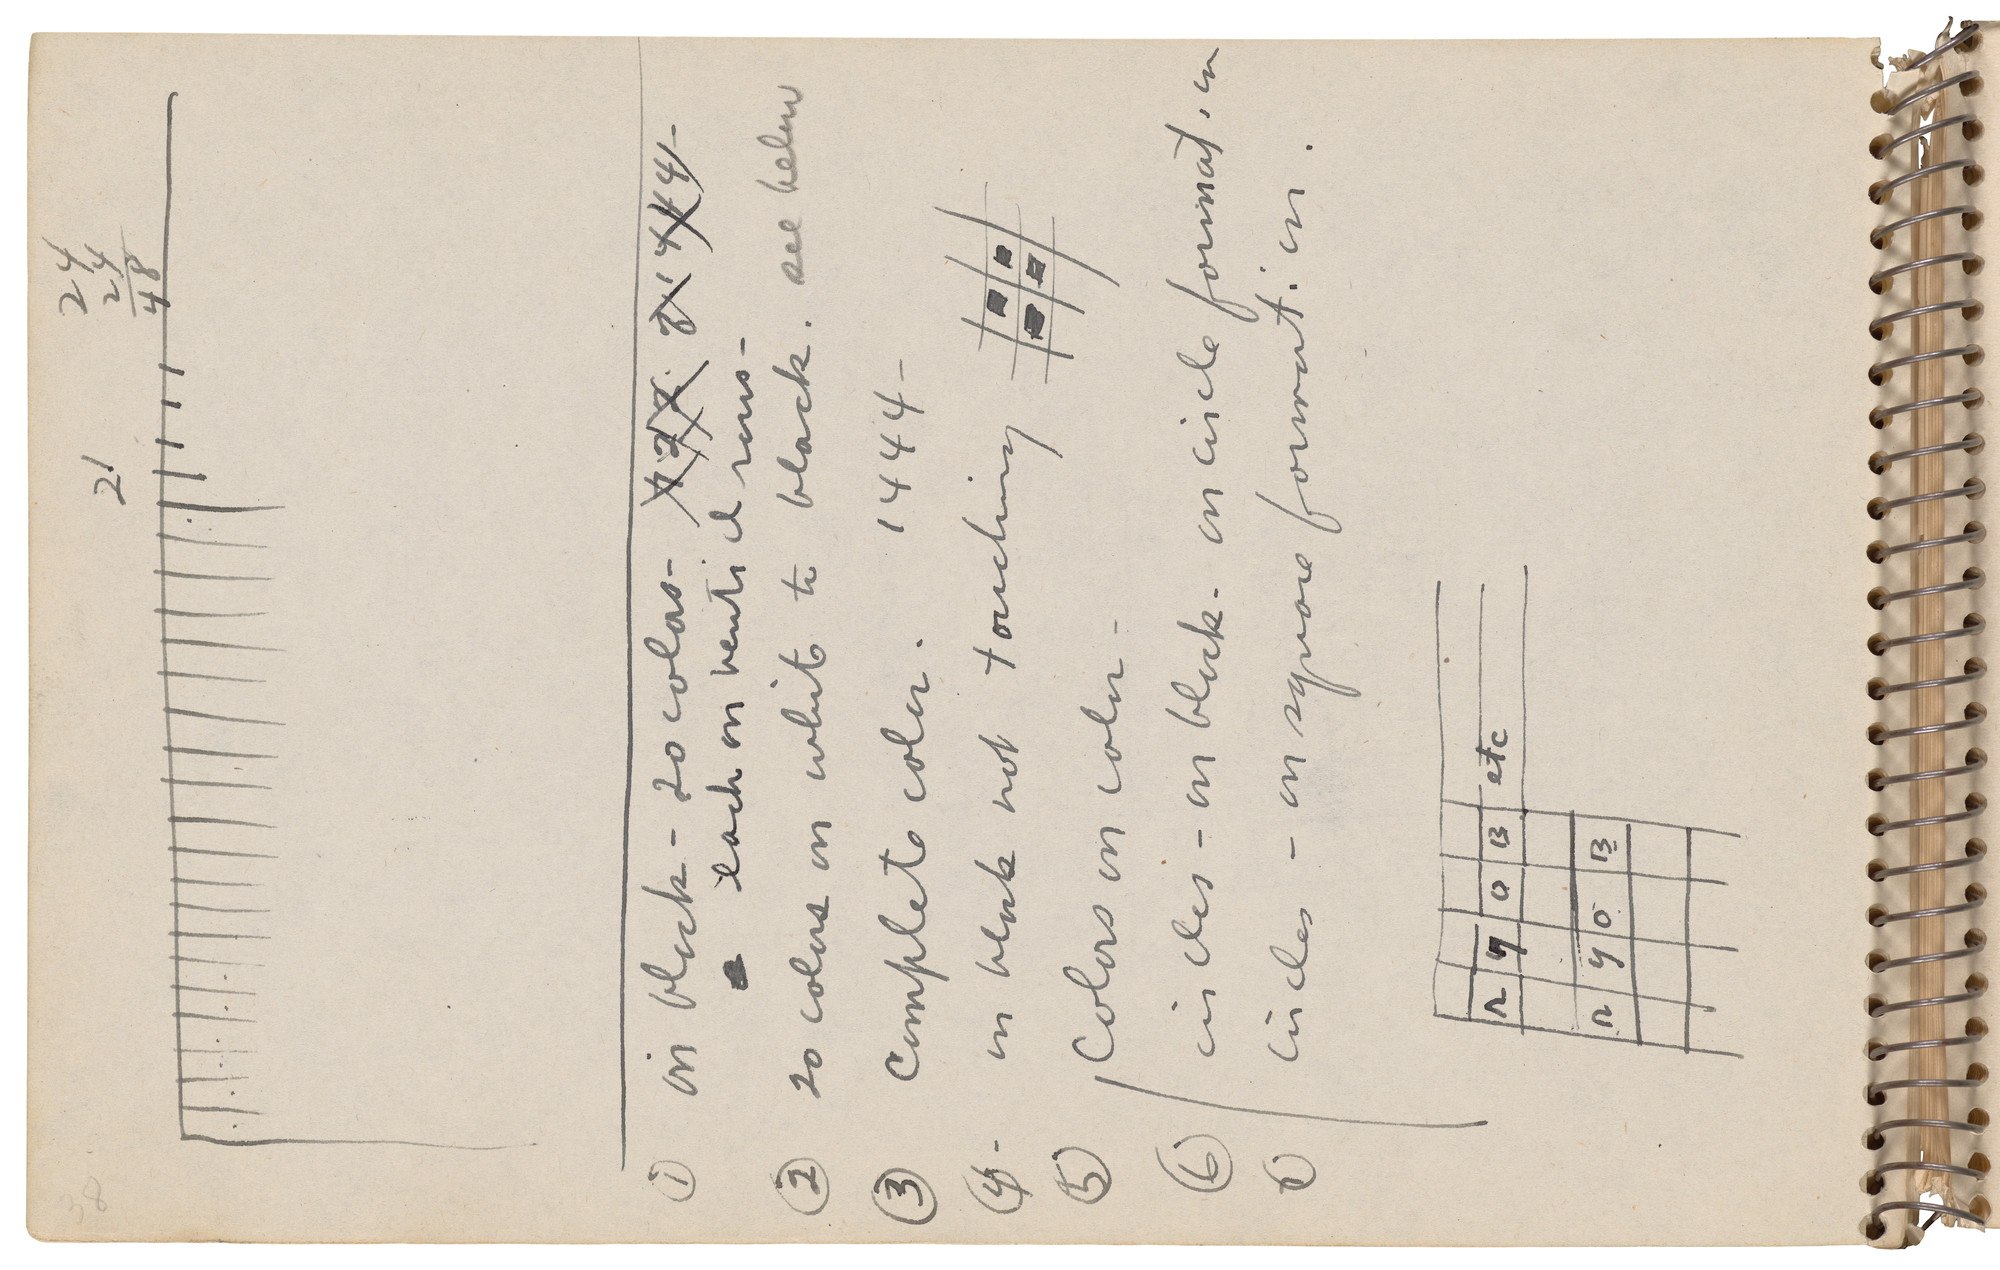 24
24
48
21
① on black - 20 colors -
each on vertical rows -
② 20 colors on white to black. see below
③ complete color. 1444 -
④ - on black not touching
⑤ Colors on color -
⑥ circles - on black - on circle format.on
circles - on square format.on.
R Y O B etc
R Y O B
38